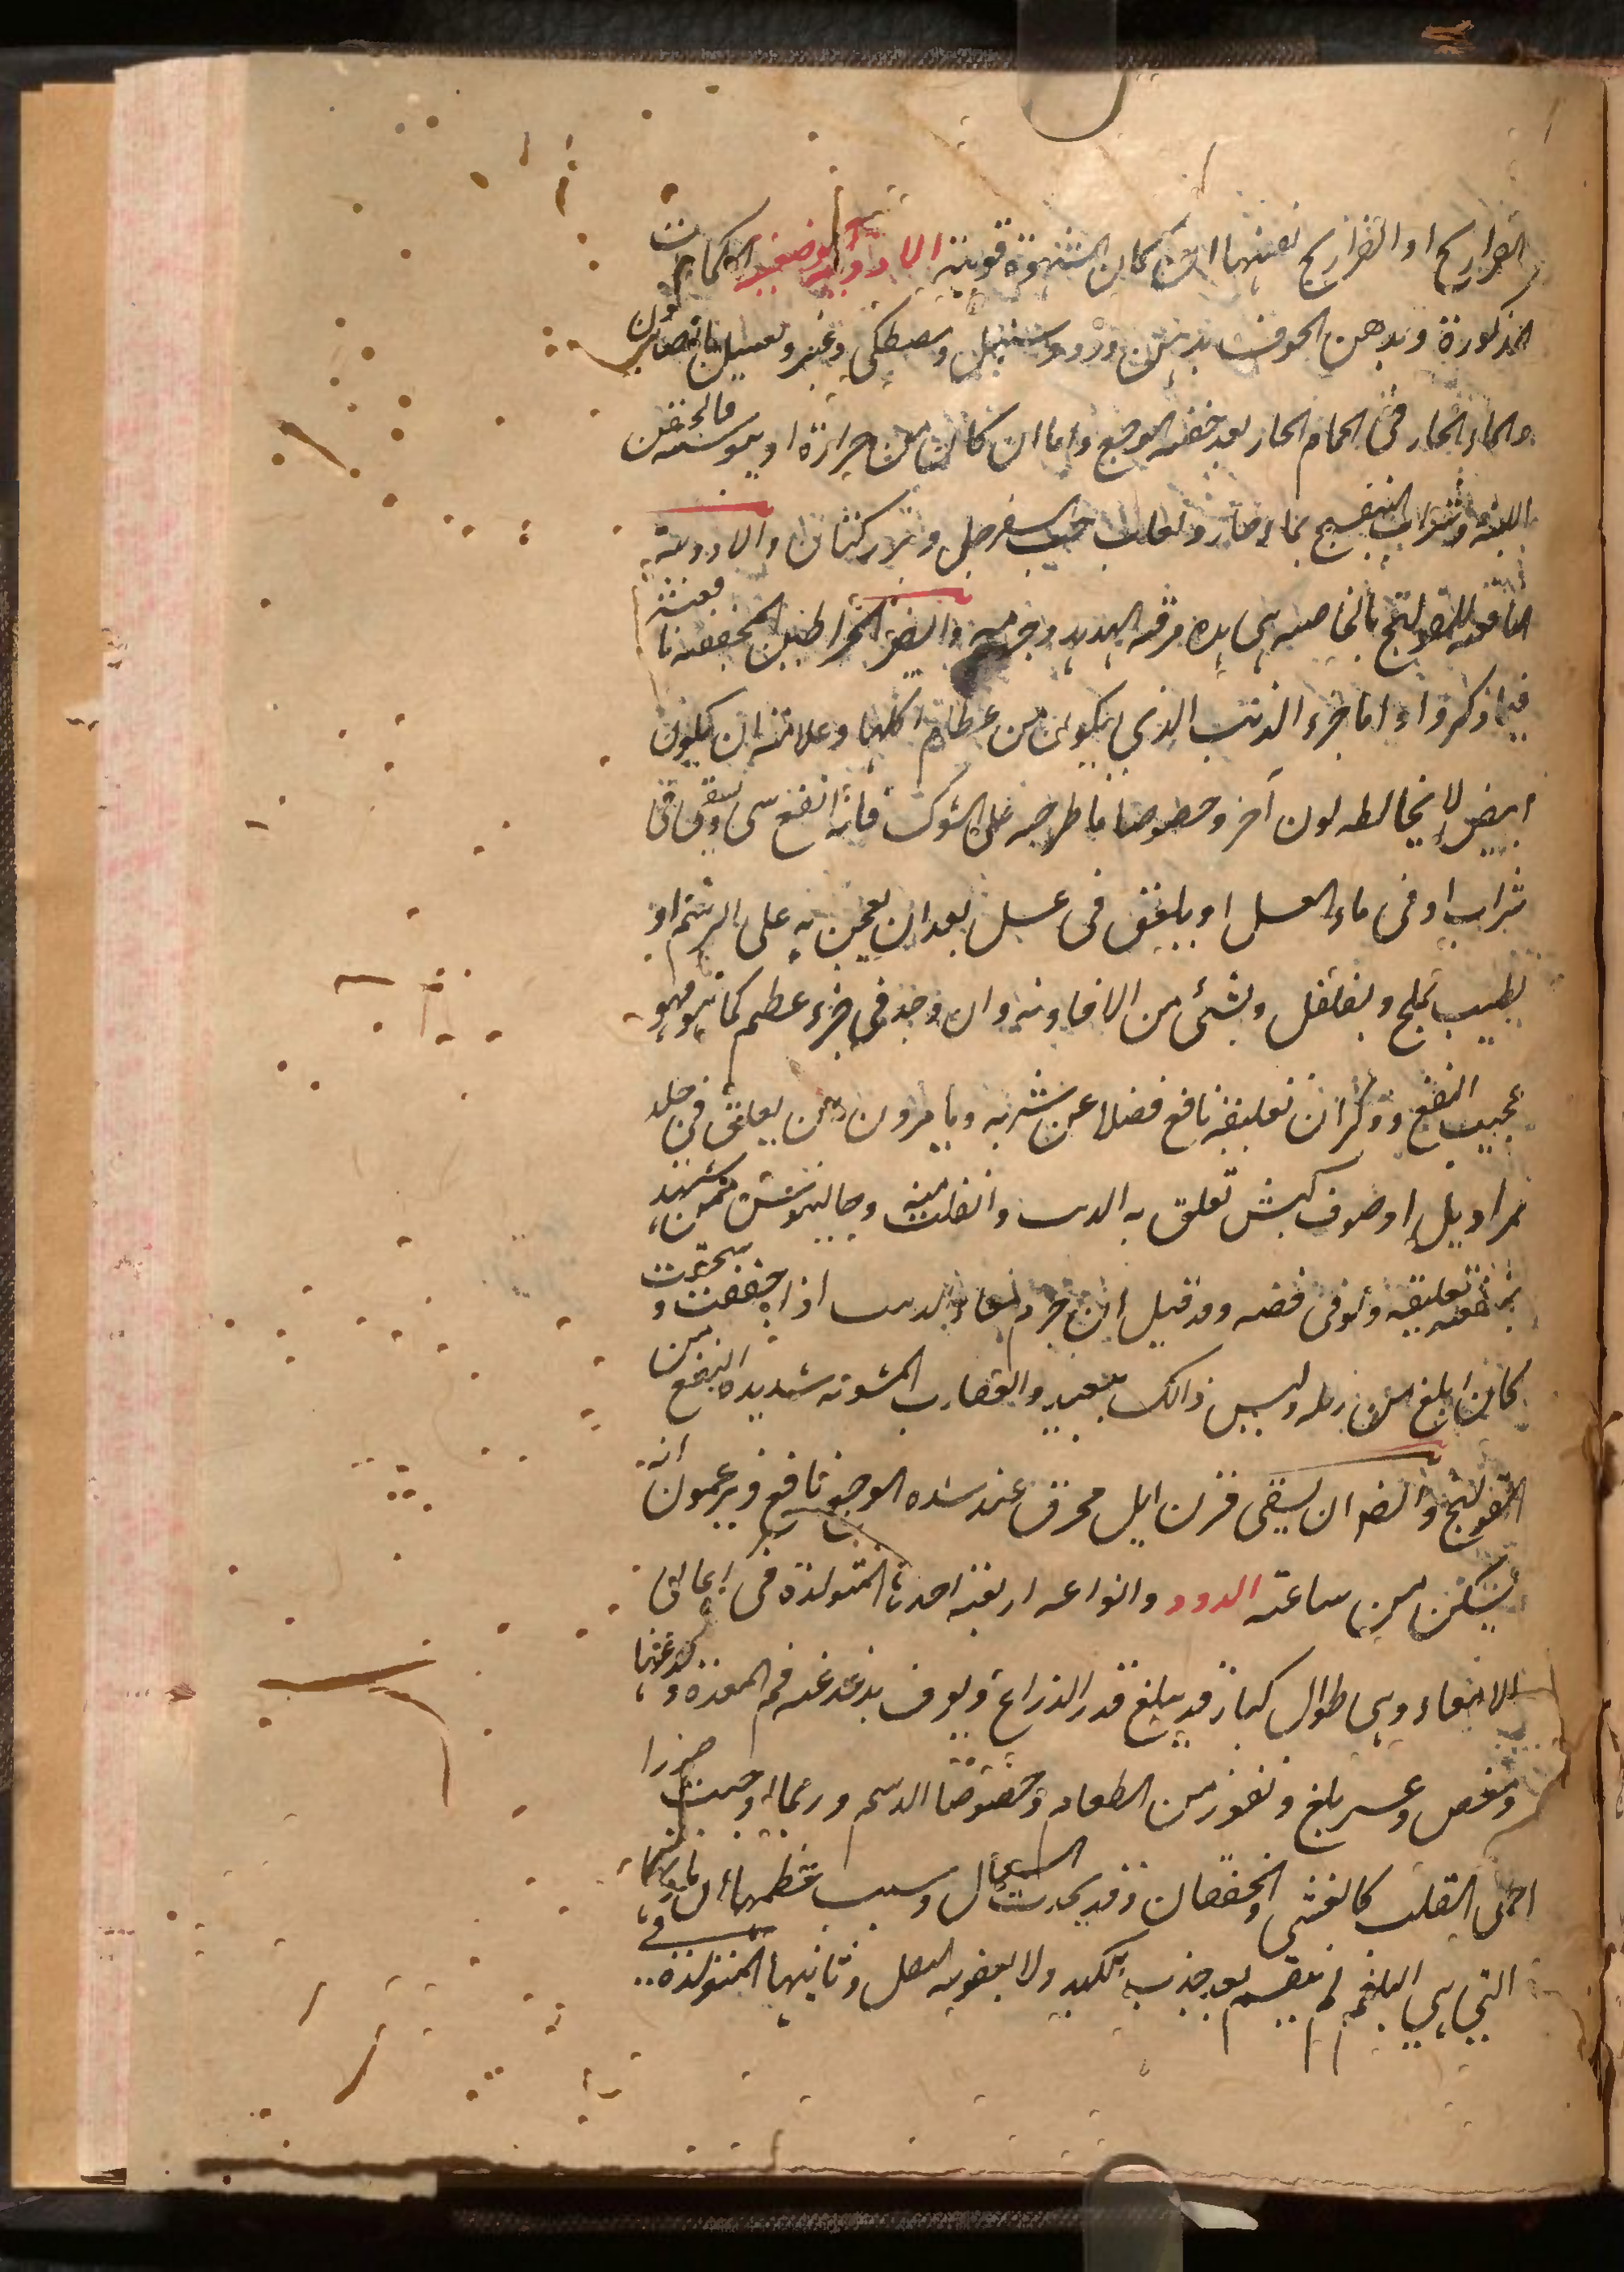 الفراريج او الفراريج نفسها ان كان الشهوة قوية الادوية الموضعية الكمادات
المذكورة ويدهن الجوف بدهن ورد وسنبل ومصطكى وغيره ويغسل
بالماء الحار فى الحمام الحار بعد خفة الوجع واما ان كانت من حرارة او يبوسة فالحقن
اللينة وشراب البنفسج بماء حار ولعاب حب السفرجل وبزر كتان والادوية
النافعة للقولنج بالخاصية هى هذه مرقة الهدهد وجرمه وايضا الخراطين المجففة نافعة
فيما ذكروا واما خرء الذئب الذى يكون من عظام اكلها وعلامته ان يكون
ابيض لا يخالطه لون آخر وخصوصا ما طرحه على الشوك فانه انفع شى ويسقى فى
شراب او فى ماء العسل او يلعق فى عسل بعد ان يعجن به على الرسم او
يطيب بملح وبفلفل وبشئ من الافاويه وان وجد فى خرء عظم كما هو فهو
عجيب النفع وذكر ان تعليقه نافع فضلا عن شربه ويامرون ان يعلق فى جلد
او صوف كبش تعلق به الذئب وانفلت منه وجالينوس يشهد
بنفعه تعليقه ولو فى فضه وقد قيل ان جرم امعاء الذئب اذا جففت وسحقت
كان ابلغ من زبله وليس ذالك ببعيد والعقارب المشويه شديدة النفع من
القولنج وايضا ان يسقى قرن ايل محرق عند شده الوجع نافع ويزعمون انه
يسكن من ساعته الدود وانواعه اربعة احدها المتولدة فى اعالى
الامعاء وهى طوال كبار قد يبلغ قدر الذراع ويعرف بدغدغه فم المعدة ولذعها
ومغص وعسر بلع ونفور من الطعام وخصوصا الدسم وربما اوجبت ضررا
الى القلب كالغشى والخفقان وقد يحدث السعال وسبب عظمها ان مادتها
التى هى البلغم لم ينقسم بعد بجذب الكبد ولا بعفونه الثفل وثانيها المتولدة فى